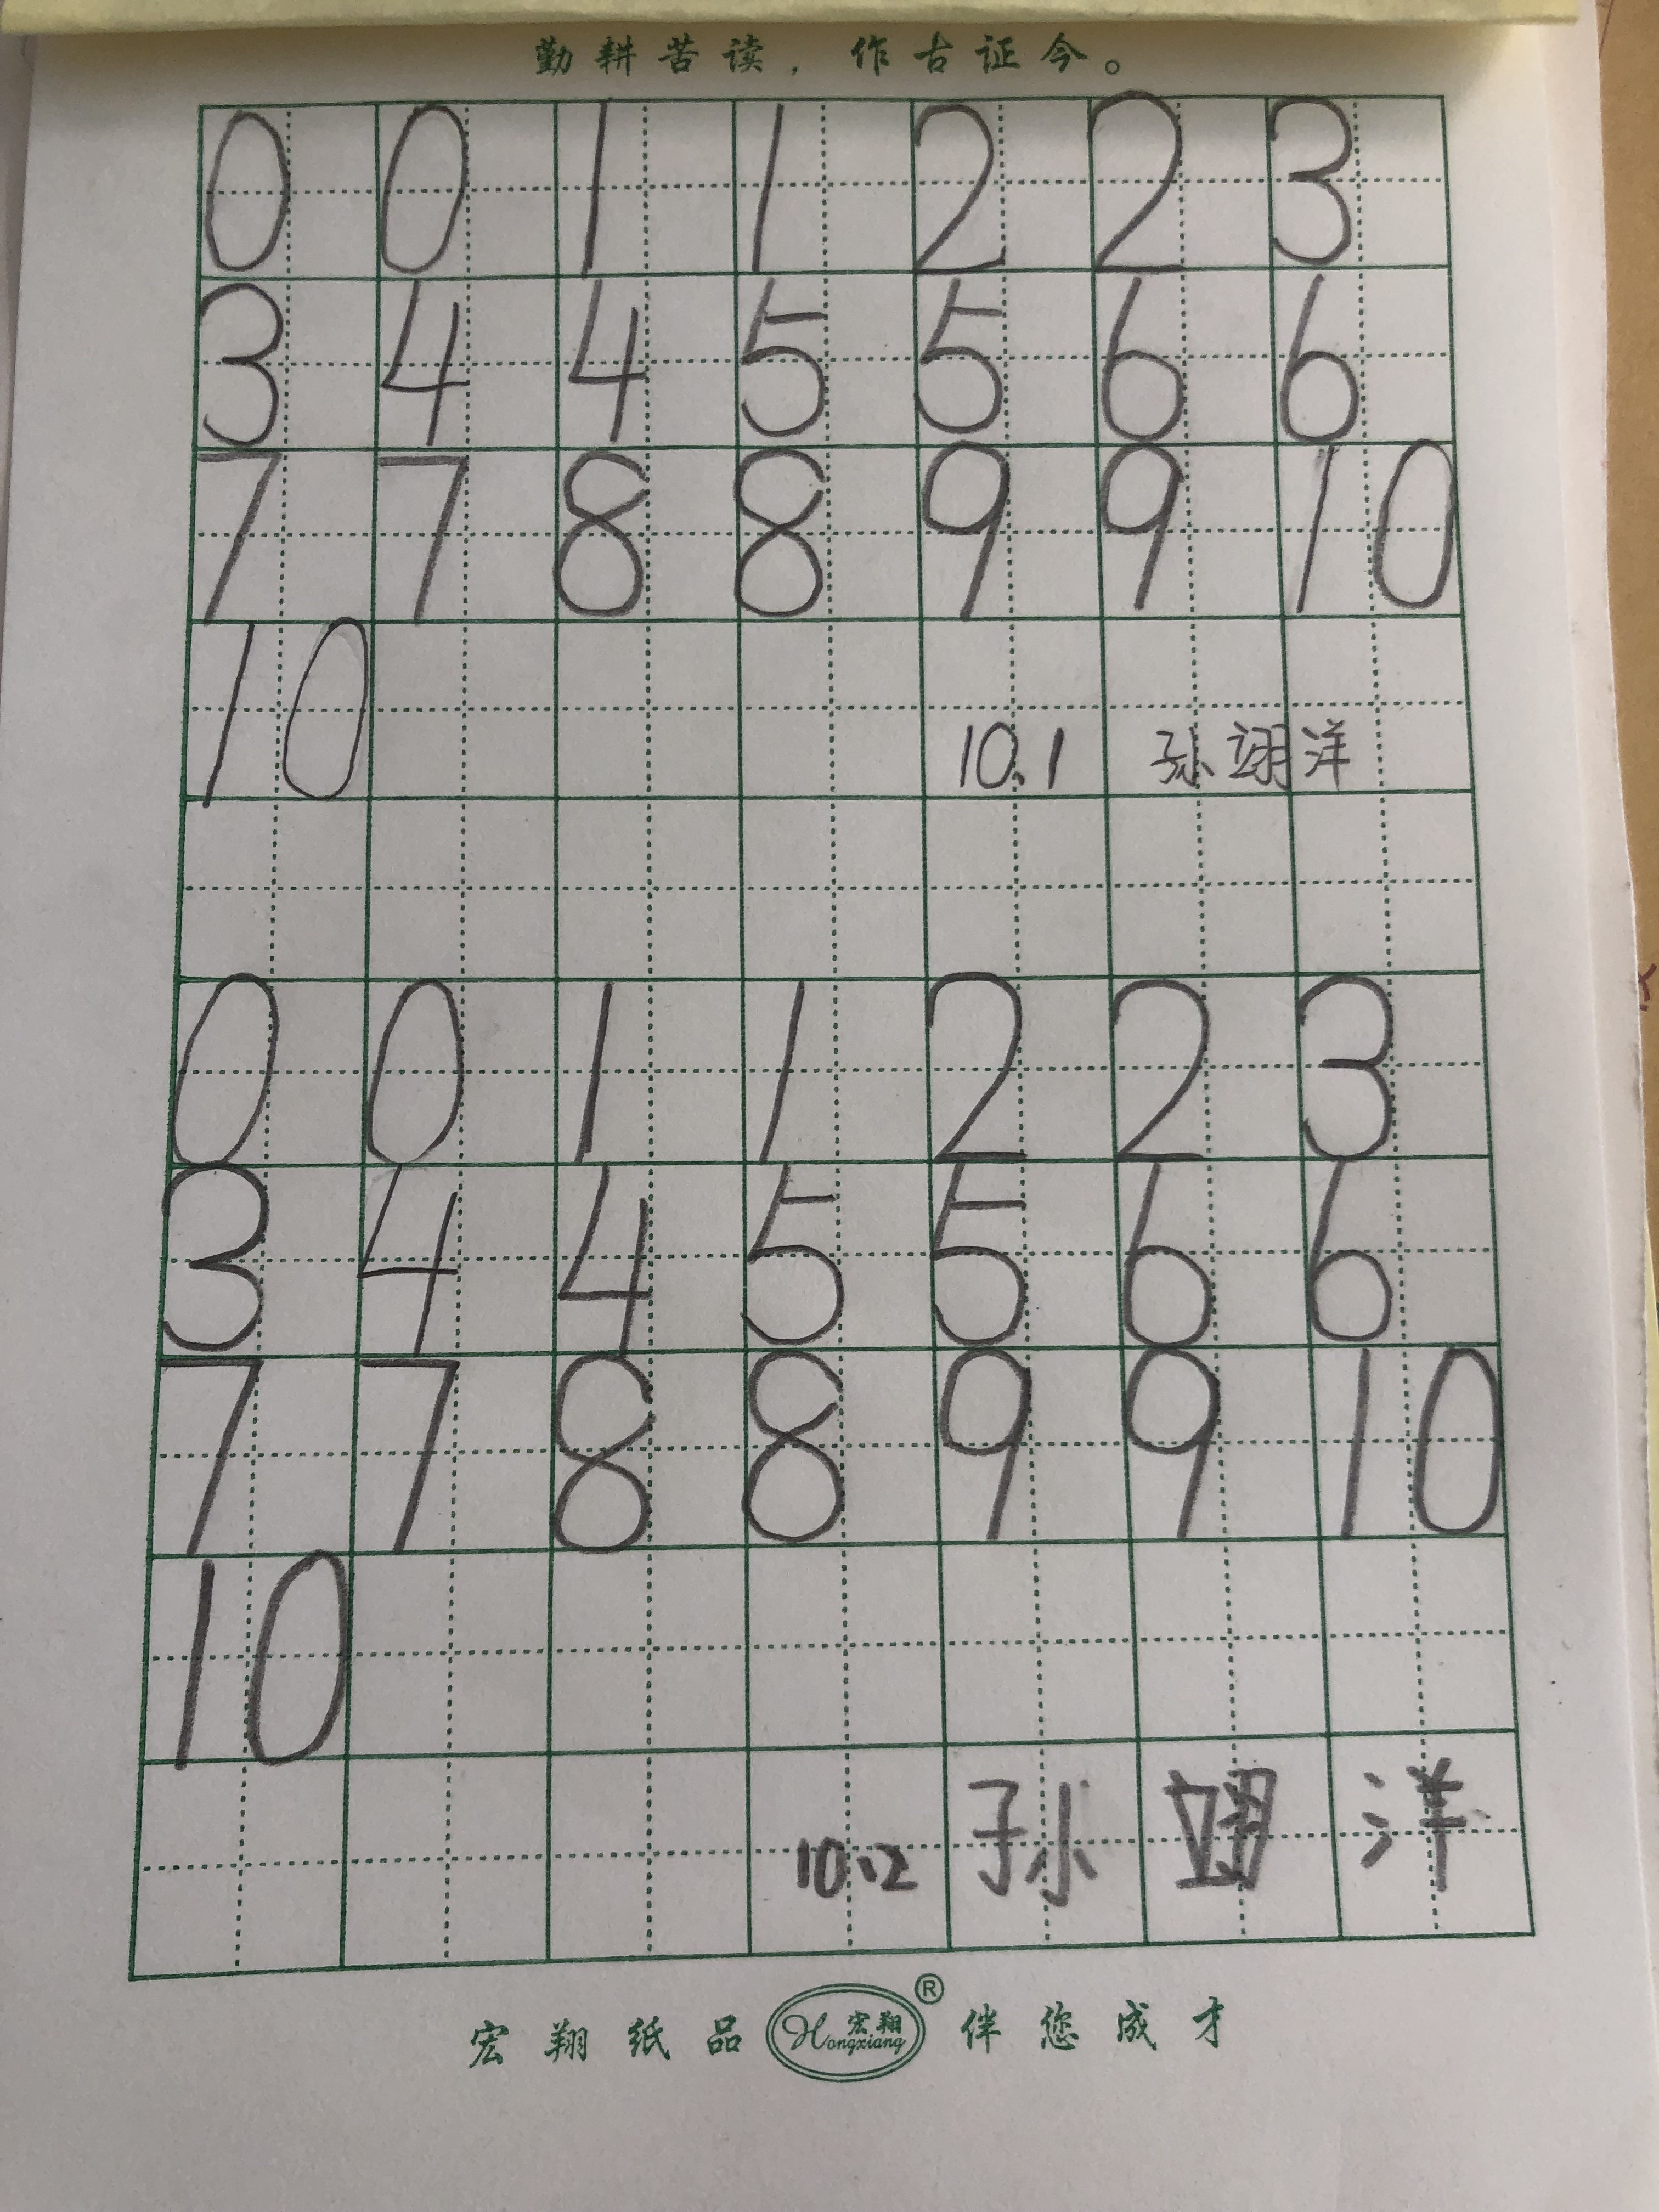 勤耕苦读，作古证今。
0 0 1 1 2 2 3
3 4 4 5 5 6 6
7 7 8 8 9 9 10
10
10.1 孙翊洋
0 0 1 1 2 2 3
3 4 4 5 5 6 6
7 7 8 8 9 9 10
10
10.2 孙翊洋
宏翔纸品 宏翔 Hongxiang ® 伴您成才